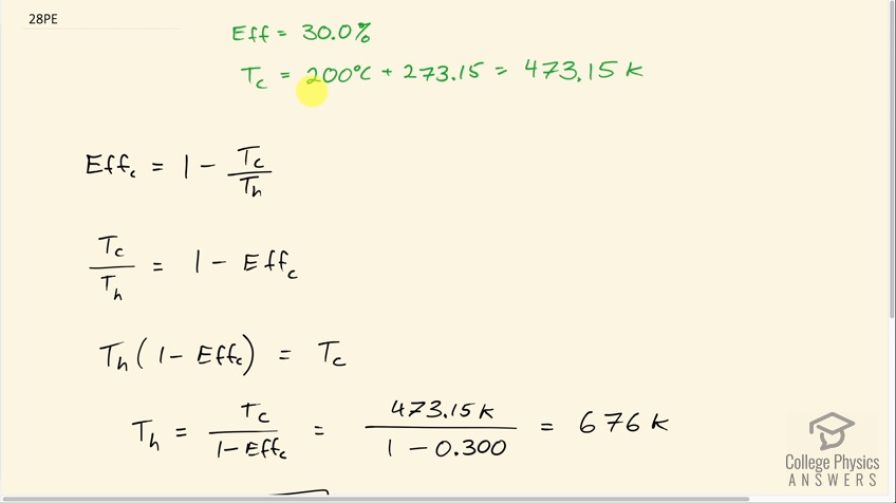 28PE
Eff = 30.0%
Tc = 200°C + 273.15 = 473.15 K
Effc = 1 - Tc/Th
Tc/Th = 1 - Effc
Th(1 - Effc) = Tc
Th = Tc/(1 - Effc) = 473.15 K/(1 - 0.300) = 676 K
College Physics
ANSWERS